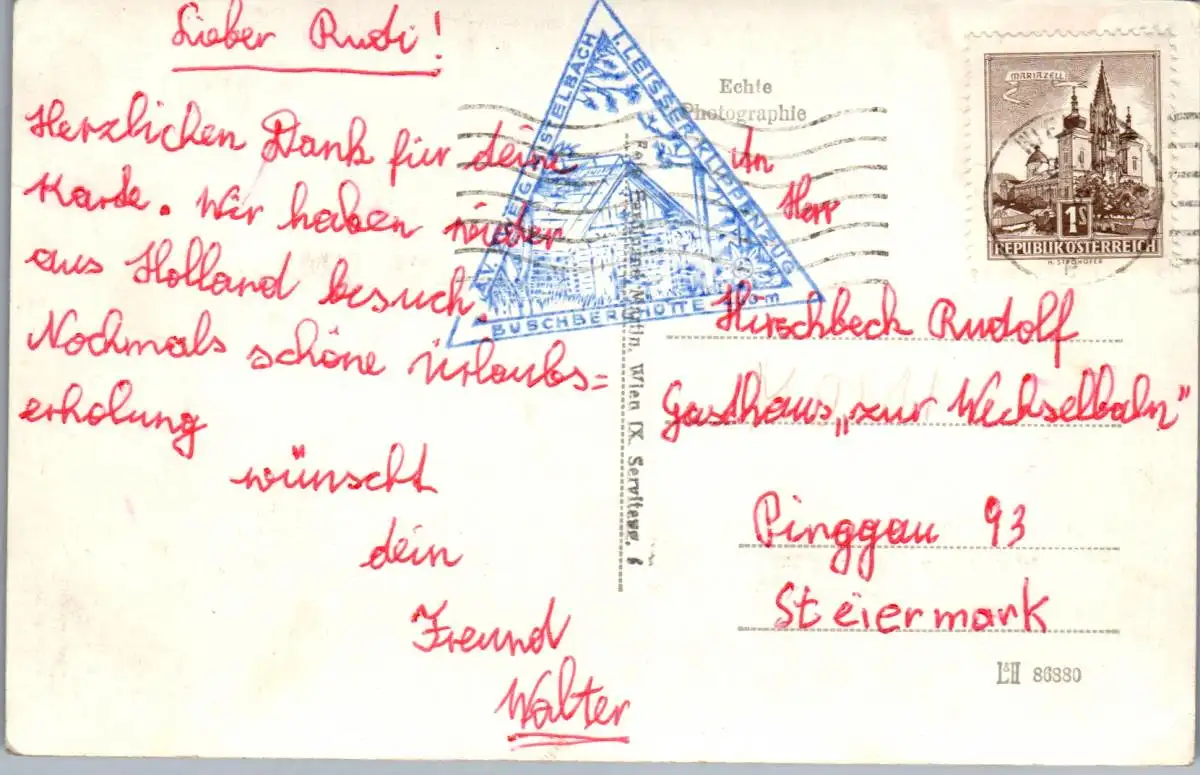 Lieber Rudi!
Herzlichen Dank für deine
Karde. Wir haben wieder
aus Holland besuch.
Nochmals schöne Urlaubs=
erholung
wünscht
dein
Freund
Walter
I. LEISSER KLIPPENZUG
MISTELBACH
BUSCHBERGHÜTTE
Echte
Photographie
Wien IX, Serviteng. 6
An
Herr
Hirschbeck Rudolf
Gasthaus „zur Wechselbahn"
Pinggau 93
Steiermark
MARIAZELL
1S
REPUBLIK ÖSTERREICH
H. STROHOFER
L&H 86880